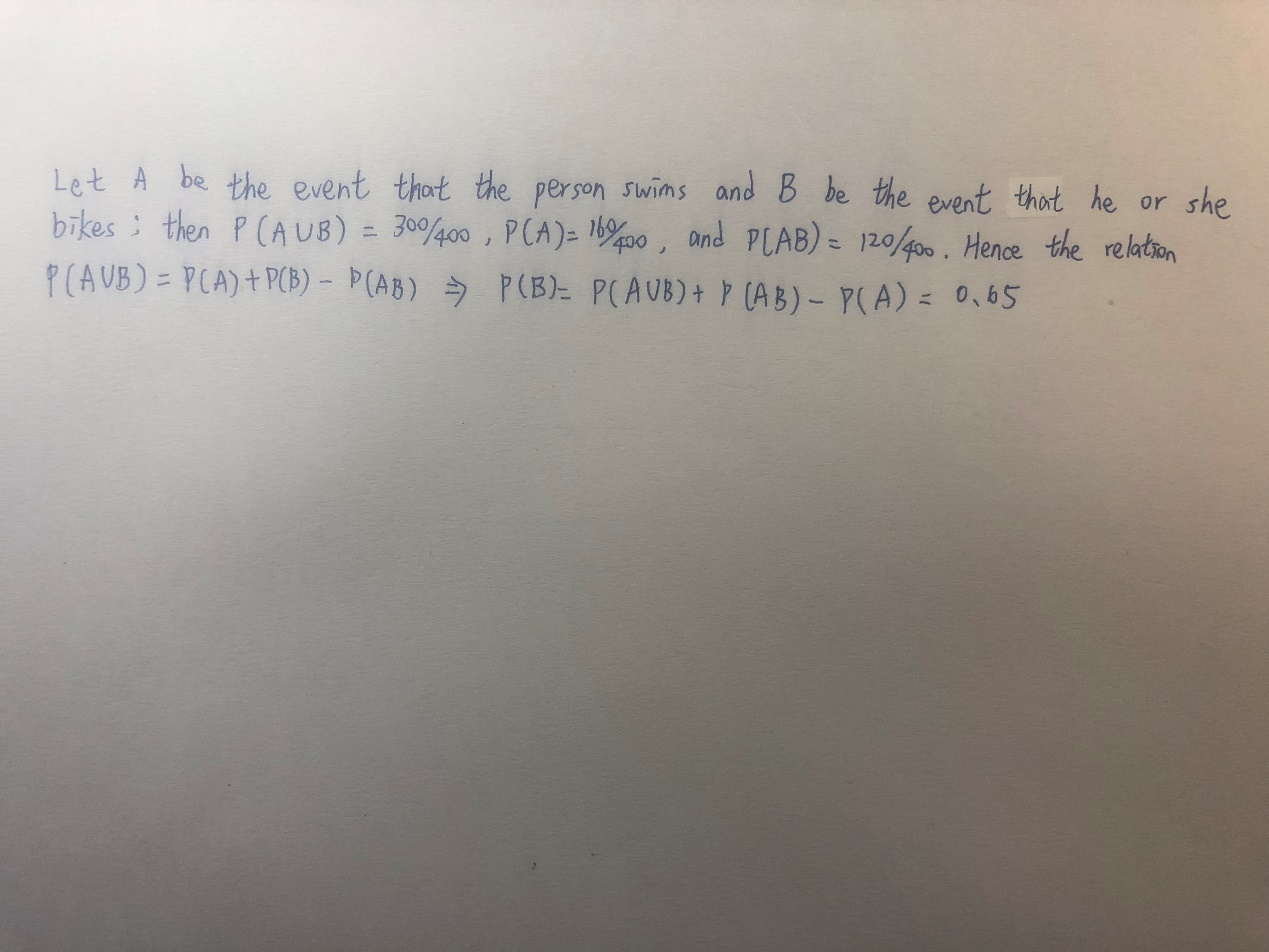 Let A be the event that the person swims and B be the event that he or she
bikes; then P(AUB) = 300/400, P(A)= 160/400, and P(AB) = 120/400. Hence the relation
P(AUB) = P(A)+P(B) - P(AB) ⇒ P(B)= P(AUB)+ P(AB) - P(A) = 0.65